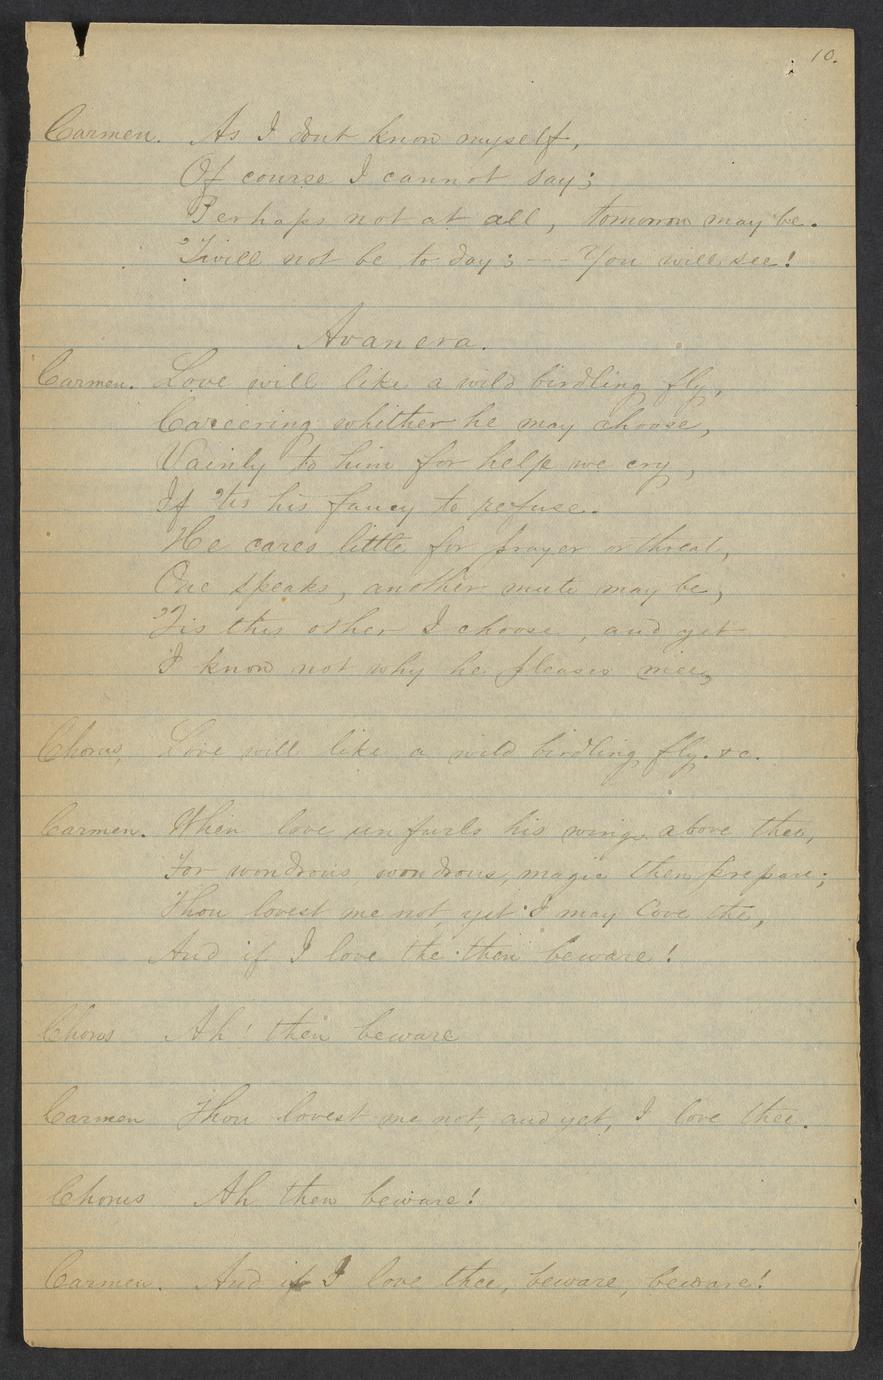 10.
Carmen. As I dont know myself,
Of course I cannot say;
Perhaps not at all, tomorrow may be.
'Twill not be to day; --- You will see!
Avanera.
Carmen. Love will like a wild birdling fly,
Careering whither he may choose,
Vainly to him for help we cry,
If 'tis his fancy to refuse.
He cares little for prayer or threat,
One speaks, another mute may be,
'Tis this other I choose, and yet
I know not why he pleases me,
Chorus, Love will like a wild birdling fly. &c.
Carmen. When love unfurls his wings above thee,
For wondrous, wondrous, magic then prepare;
Thou lovest me not, yet I may love the,
And if I love the then beware!
Chorus Ah! then beware
Carmen Thou lovest me not, and yet, I love thee.
Chorus Ah then beware!
Carmen. And if I love thee, beware, beware!